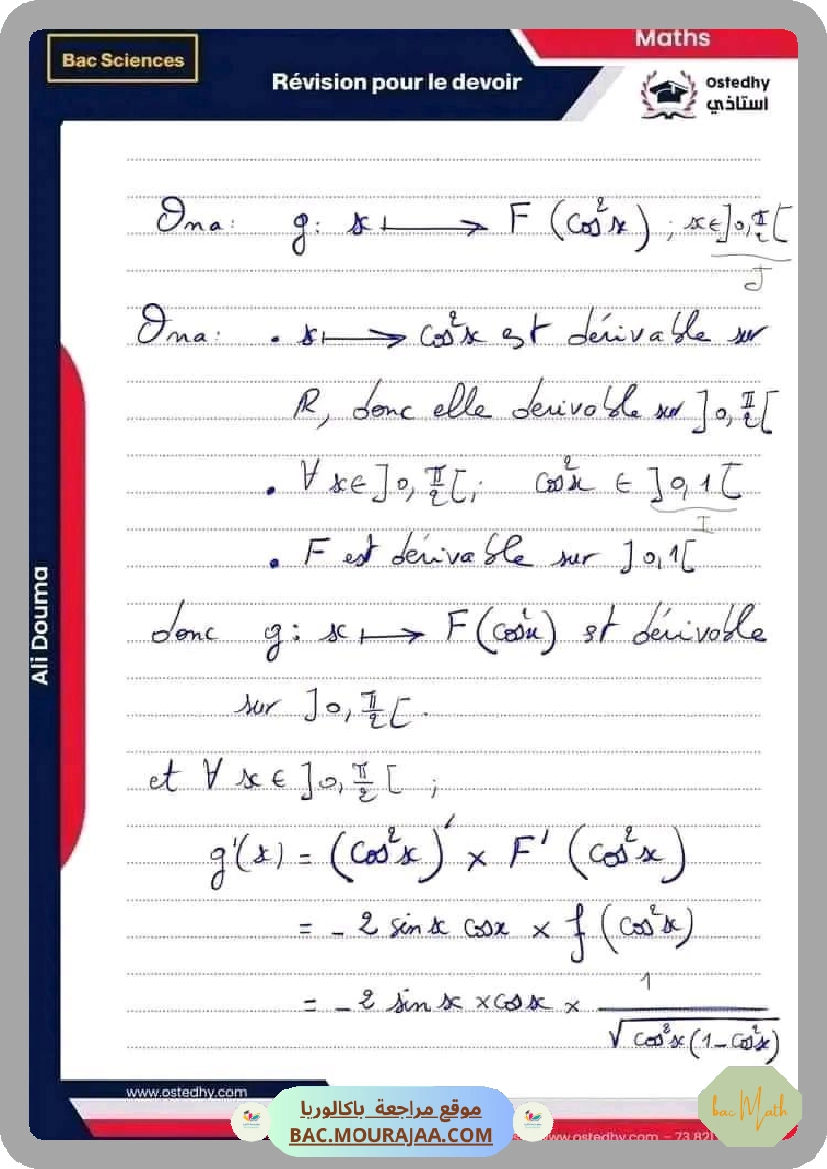 Maths
Bac Sciences
Révision pour le devoir
Ostedhy
أستاذي
Ona: g: x ↦ F (cos²x) ; x ∈ ]0, π/2[
J
Ona: • x ↦ cos²x est dérivable sur
ℝ, donc elle derivable sur ]0, π/2[
• ∀ x ∈ ]0, π/2[ ; cos²x ∈ ]0,1[
I
• F est dérivable sur ]0,1[
donc g: x ↦ F(cos²x) est dérivable
sur ]0, π/2[.
et ∀ x ∈ ]0, π/2[ ;
g'(x) = (cos²x)' × F' (cos²x)
= - 2 sin x cos x × f (cos²x)
= - 2 sin x × cos x × 1 / √(cos²x(1-cos²x))
Ali Douma
www.ostedhy.com
موقع مراجعة باكالوريا
BAC.MOURAJAA.COM
www.ostedhy.com – 73.821
bac Math